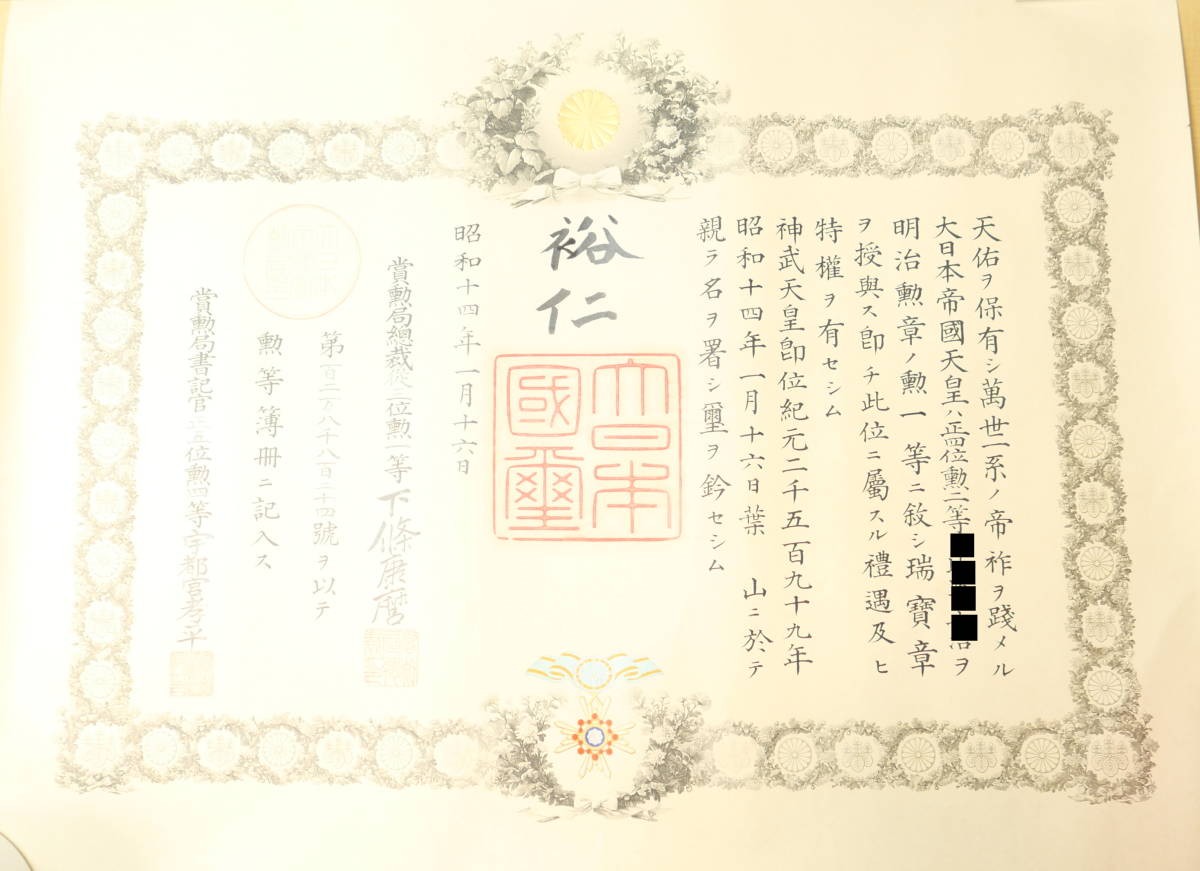 天佑ヲ保有シ萬世一系ノ帝祚ヲ踐メル
大日本帝國天皇ハ正四位勲二等
ヲ
明治勲章ノ勲一等ニ敘シ瑞寶章
ヲ授與ス卽チ此位ニ屬スル禮遇及ヒ
特權ヲ有セシム
神武天皇卽位紀元二千五百九十九年
昭和十四年一月十六日葉山ニ於テ
親ラ名ヲ署シ璽ヲ鈐セシム
裕仁
大日本
國璽
昭和十四年一月十六日
賞勲局總裁從二位勲一等下條康麿
第百二万八千八百二十四號ヲ以テ
勲等簿册ニ記入ス
賞勲局書記官正五位勲四等宇都宮孝平